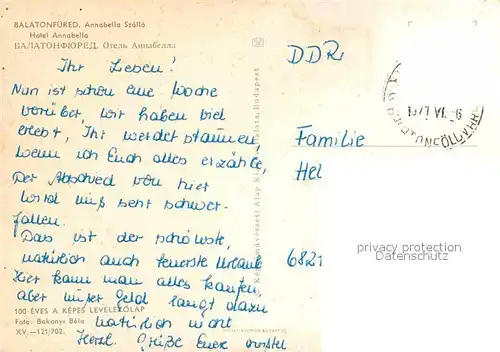 BALATONFÜRED, Annabella Szálló
Hotel Annabella
БАЛАТОНФЮРЕД. Отель Аннабелла
DDR
Ihr Lieben!
Nun ist schon eine Woche
vorüber, wir haben viel
erlebt, Ihr werdet staunen,
wenn ich Euch alles erzähle,
Der Abschied von hier
wird mir sehr schwer-
fallen.
Das ist der schönste,
natürlich auch teuerste Urlaub
Hier kann man alles kaufen,
aber unser Geld langt dazu
natürlich nicht
Herzl. Grüße Eure
Familie
Hel
6821
privacy protection
Datenschutz
100 ÉVES A KÉPES LEVELEZŐLAP
Foto: Bakonyi Béla
XV.—121/702.
Képzőművészeti Alap Kiadóvállalata, Budapest